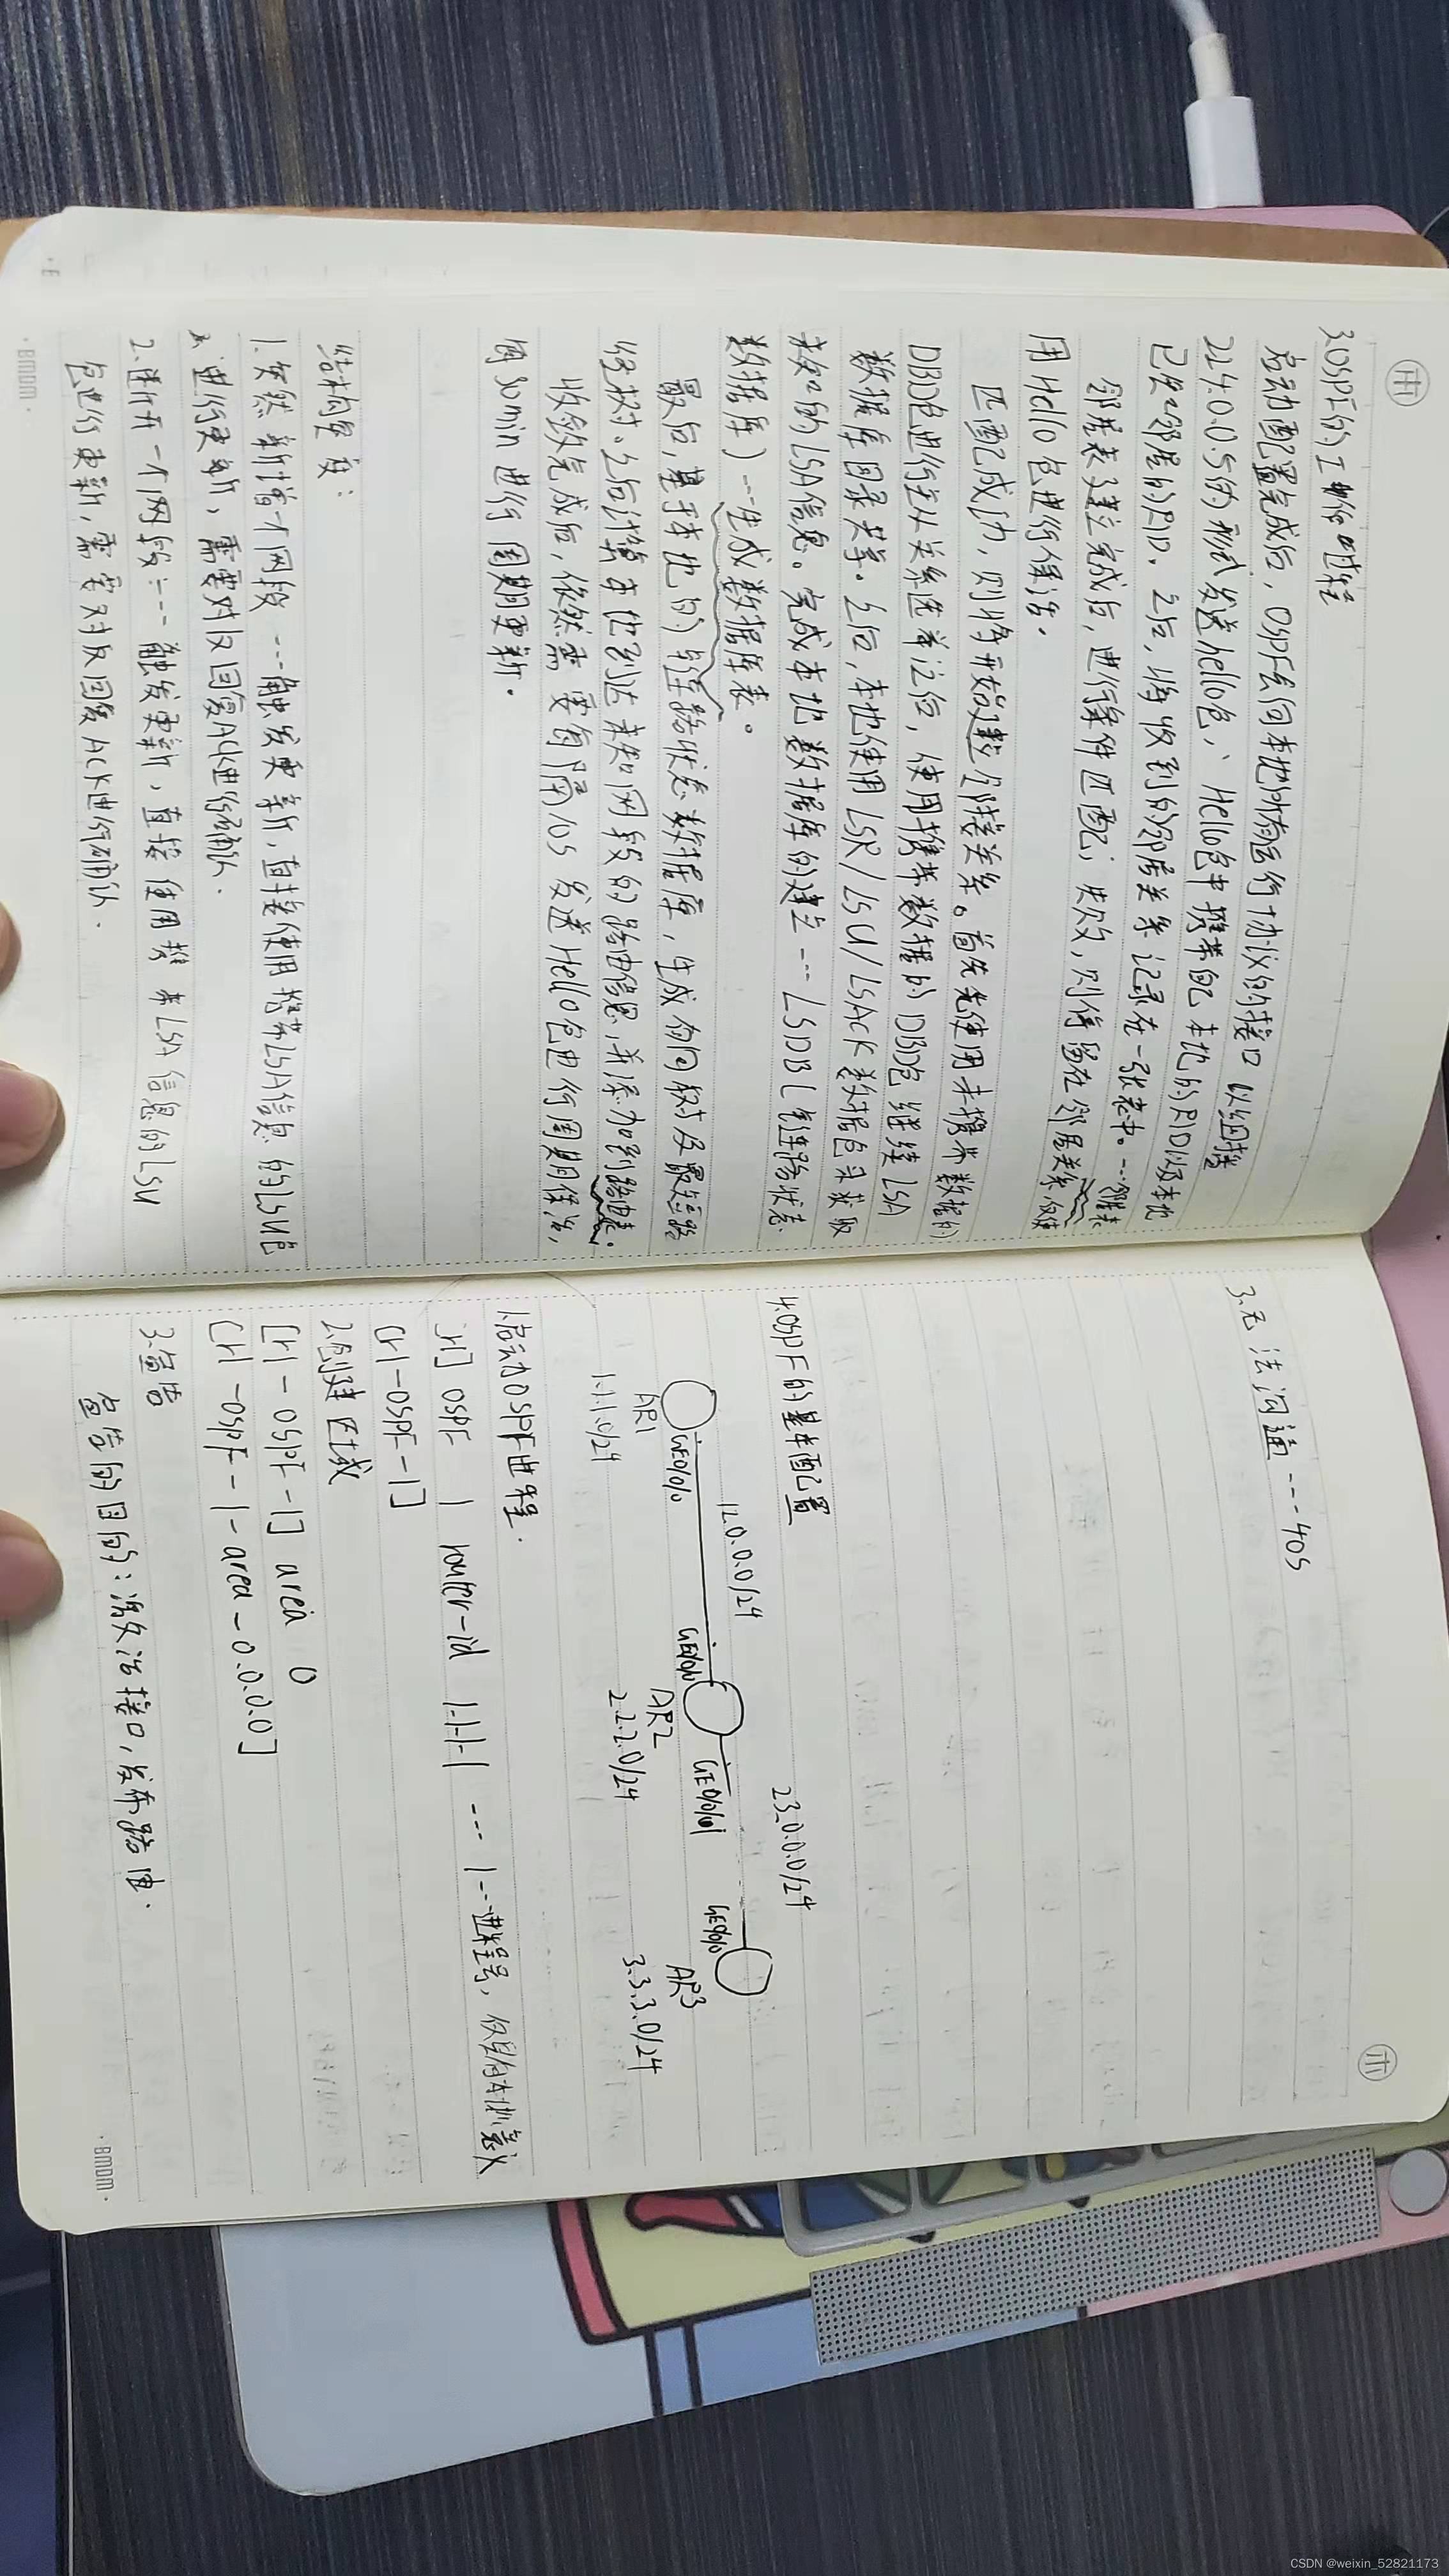 3.OSPF的工作过程
启动配置完成后，OSPF会向本地所有运行协议的接口以组播
224.0.0.5的形式发送hello包、Hello包中携带自己本地的RID以及本地
已知邻居的RID。之后，将收到的邻居关系记录在一张表中。---邻居表
邻居表建立完成后，进行条件匹配；失败，则停留在邻居关系，仅使
用Hello包进行保活.
匹配成功，则将开始建立邻接关系。首先使用未携带数据的
DBD包进行主从关系选举之后，使用携带数据的DBD包继续LSA
数据库目录共享。之后，本地使用LSR/LSU/LSACK数据包来获取
未知的LSA信息。完成本地数据库的建立---LSDB(链路状态
数据库)---生成数据库表。
最后，基于本地的链路状态数据库，生成有向树及最短路
径树。之后计算本地到达未知网段的路由信息，并添加到路由表。
收敛完成后，依然需要每隔10s发送Hello包进行周期保活，
每30min进行周期更新.
结构突变：
1.突然新增个网段---触发更新，直接使用携带LSA信息的LSU包
进行更新，需要对反回复ACK进行确认.
2.断开一个网段：---触发更新，直接使用携带LSA信息的LSU
包进行更新，需要对反回复ACK进行确认.
3.无法沟通----40s
4.OSPF的基本配置
12.0.0.0/24
23.0.0.0/24
GE0/0/0
GE0/0/0
GE0/0/1
GE0/0/0
AR1
AR2
AR3
1.1.1.0/24
2.2.2.0/24
3.3.3.0/24
1.启动OSPF进程.
[r1] ospf 1 router-id 1.1.1.1 --- 1--进程号，仅具有本地意义
[r1-ospf-1]
2.创建区域
[r1-ospf-1] area 0
[r1-ospf-1-area-0.0.0.0]
3.宣告
宣告的目的：激活接口，发布路由.
·BMDM·
·BMDM·
CSDN @weixin_52821173